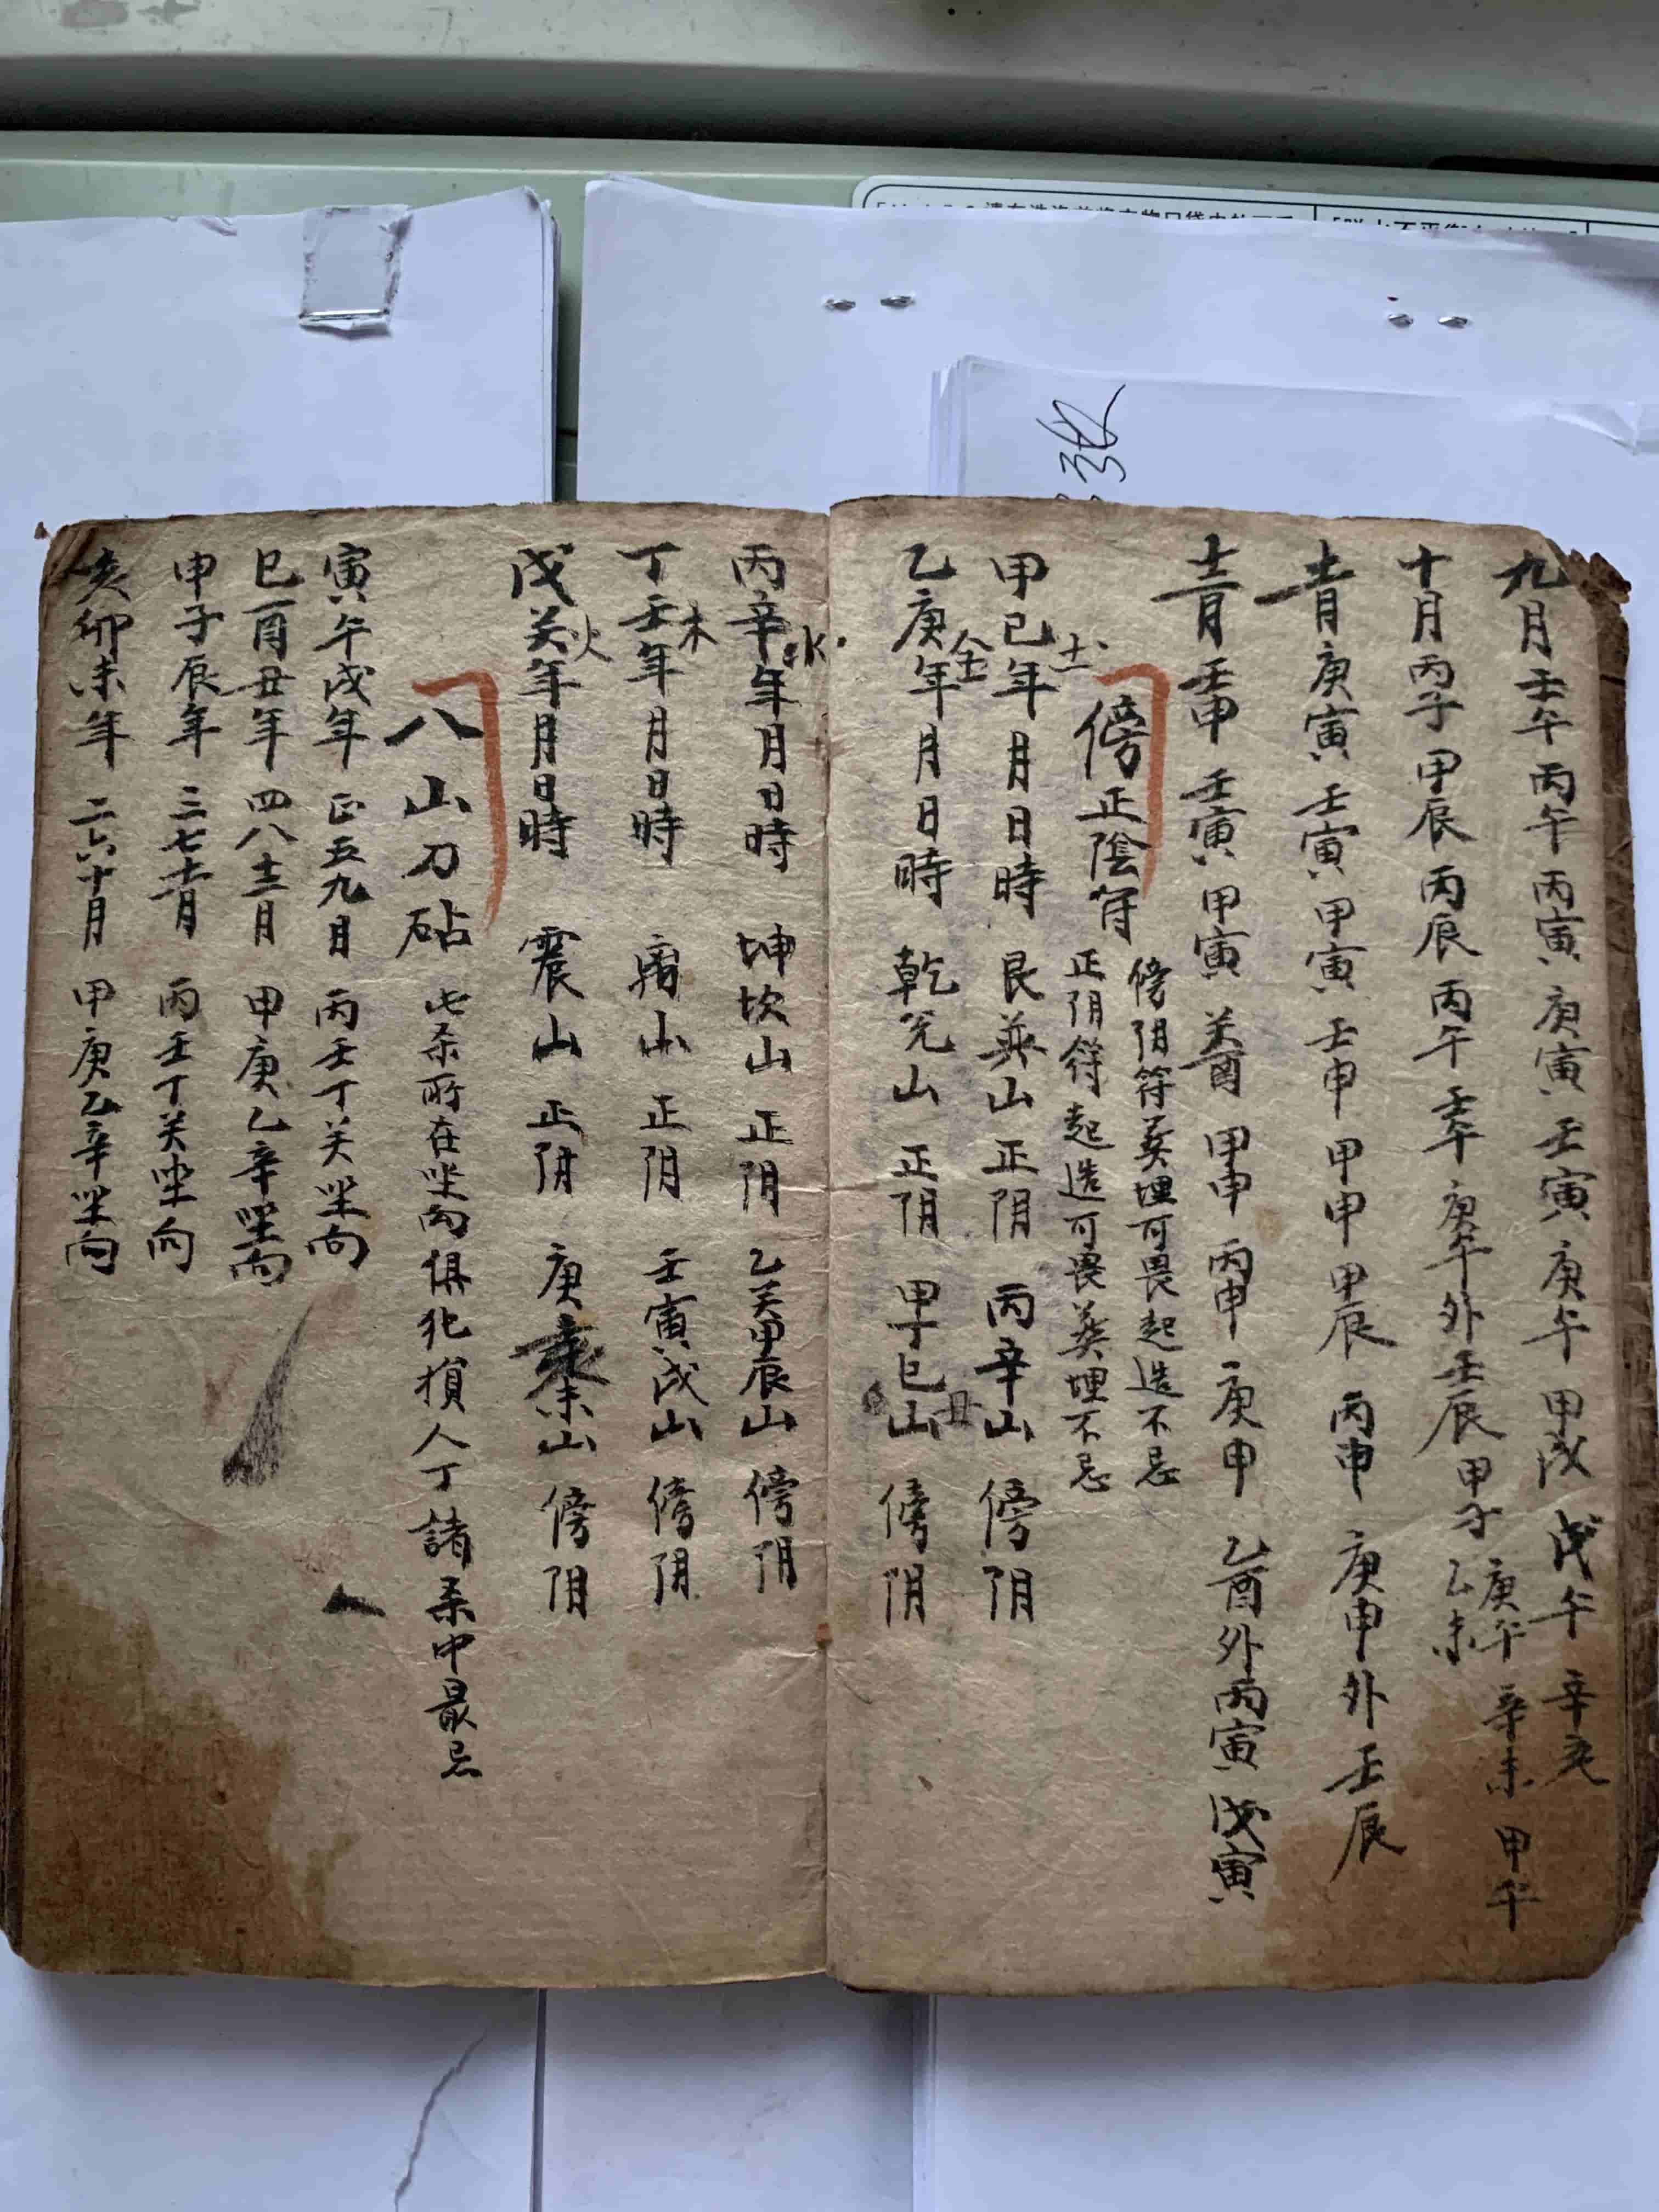 九月壬午丙午丙寅庚寅壬寅庚午甲戌戊午辛亥
十月丙子甲辰丙辰丙午壬午庚午外壬辰甲子庚午辛未甲午
乙未
十一月庚寅壬寅甲寅壬申甲申甲辰丙申庚申外壬辰
十二月壬申壬寅甲寅癸酉甲申丙申庚申乙酉外丙寅戊寅
傍正陰符
傍阴符葬埋可畏起造不忌
正阴符起造可畏葬埋不忌
土
甲己年月日時艮巽山正阴丙辛山傍阴
金
乙庚年月日時乾兑山正阴甲丁巳山傍阴
丑
水
丙辛年月日時坤坎山正阴乙关甲辰山傍阴
木
丁壬年月日時离山正阴壬寅戌山傍阴
火
戊关年月日時震山正阴庚亥未山傍阴
八山刀砧此杀所在坐向俱犯損人丁諸杀中最忌
寅午戌年正五九月丙壬丁关坐向
巳酉丑年四八十二月甲庚乙辛坐向
申子辰年三七十一月丙壬丁关坐向
亥卯未年二六十月甲庚乙辛坐向